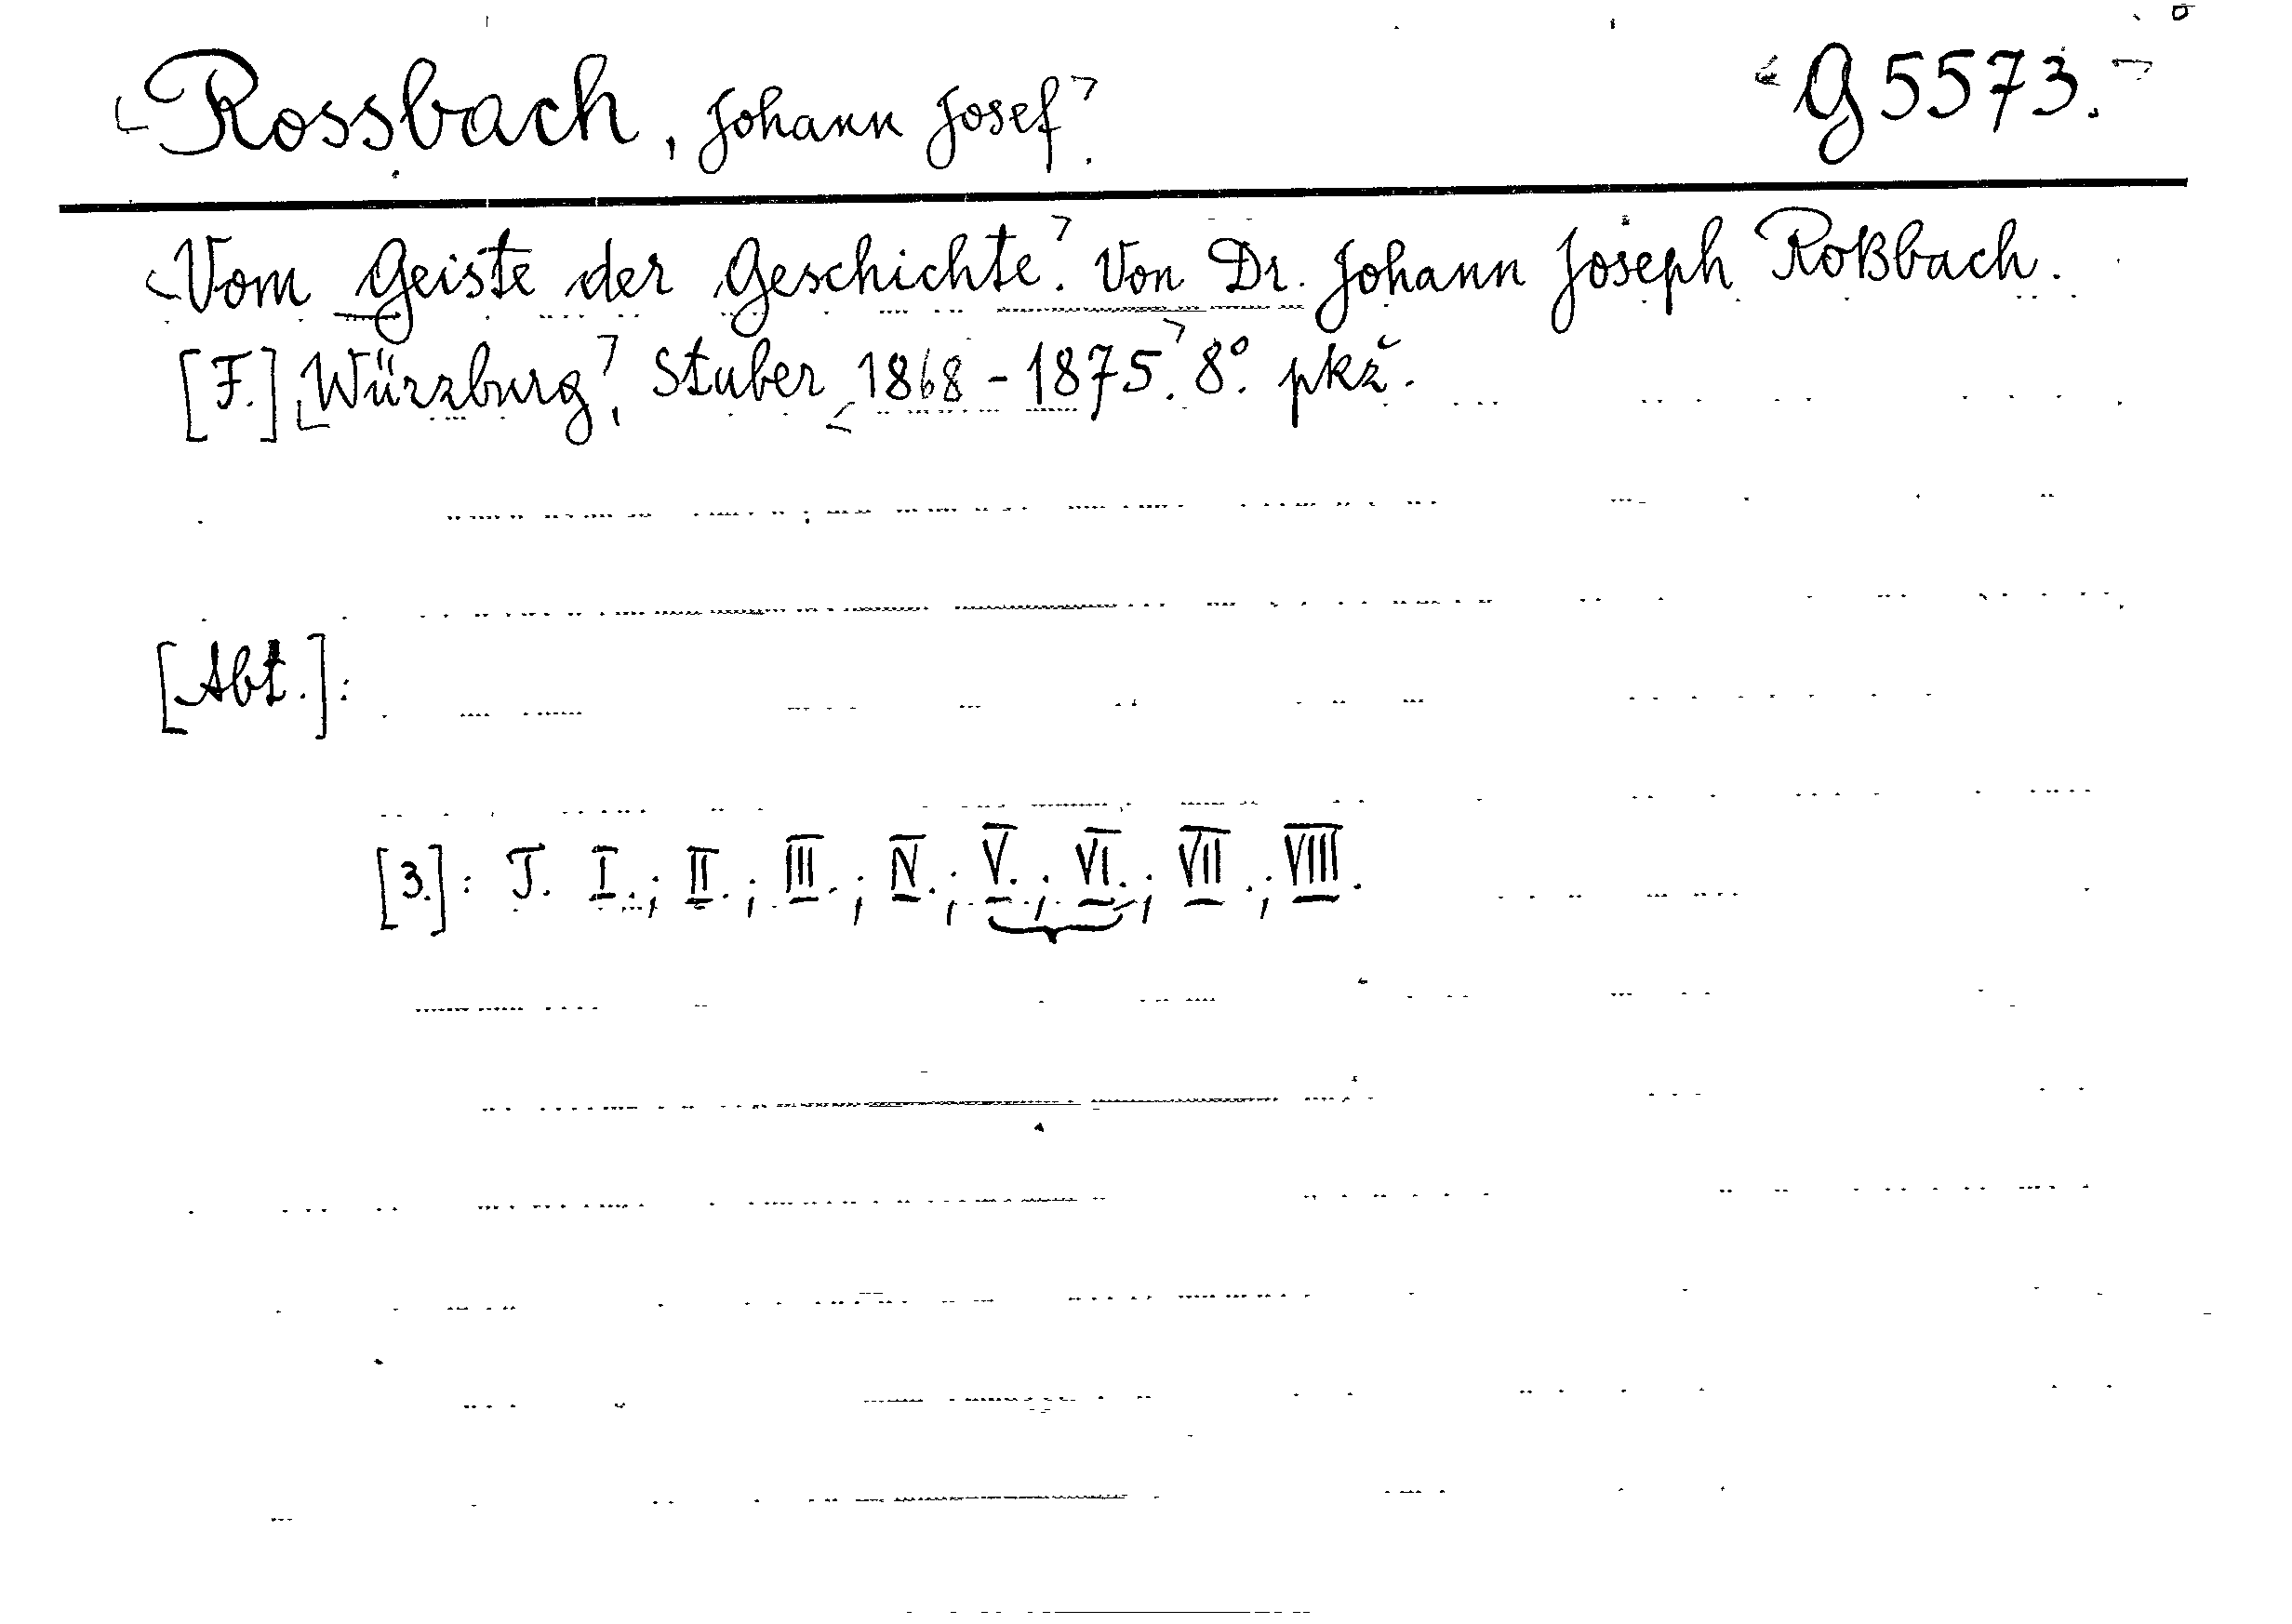 Rossbach, Johann Josef. G 5573.
Vom Geiste der Geschichte. Von Dr. Johann Joseph Roßbach.
[F.] Würzburg, Stuber 1868-1875. 8°. pkž.
[Abt.]:
[3.]: T. I.; II.; III.; IV.; V.; VI.; VII.; VIII.